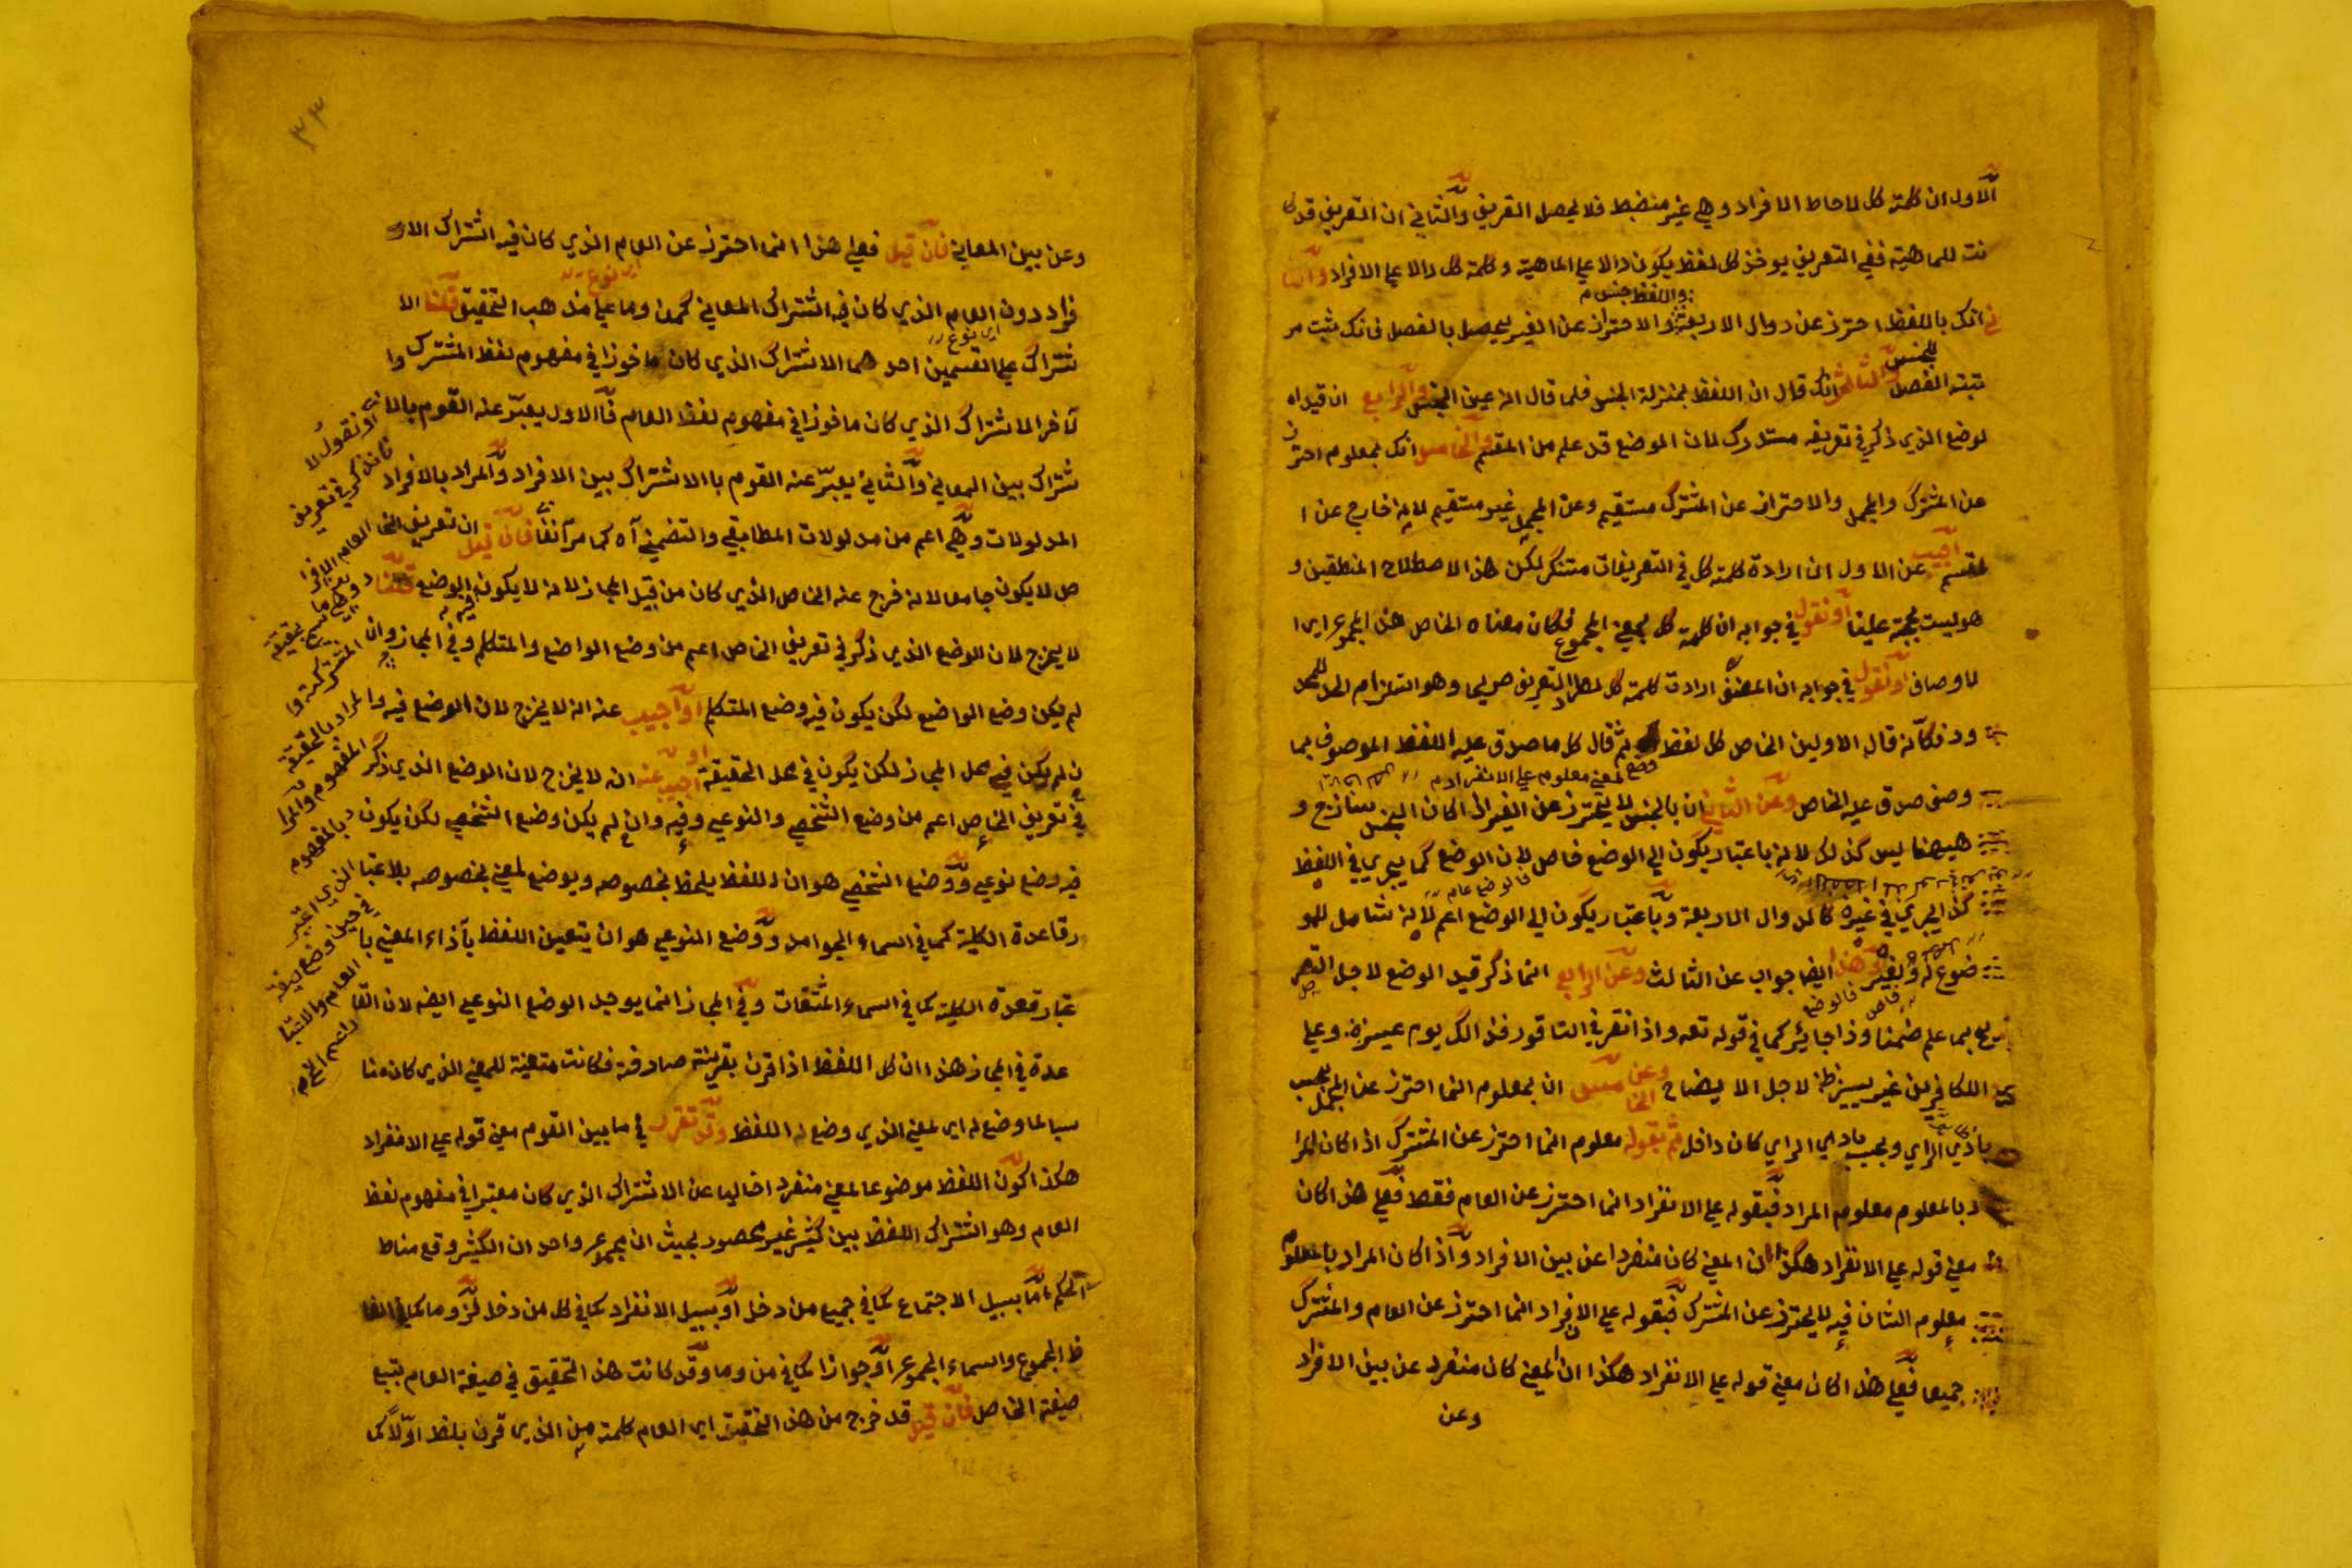 الاول ان كلمة كل لاحاطة الافراد وهي غير منضبط فلا يحصل التعريف والثاني ان التعريف قد كا
نت للماهية ففي التعريف يوخذ كل لفظ يكون دالا على الماهية وكلمة كل دالا على الافراد والثا
ني انك باللفظ احترز عن دوال الاربعة والاحتراز عن الغير يحصل بالفصل فانك تثبت مر
واللفظ جنس م
تبته الفصل للجنس والثالث انك قال ان اللفظ بمنزلة الجنس فلما قال انه عين الجنس والرابع ان قيد ا
لوضع الذي ذكر في تعريفه مستدرك لان الوضع قد علم من المقسم والخامس انك بمعلوم احترز
عن المشترك والمجمل والاحتراز عن المشترك مستقيم وعن المجمل غير مستقيم لانه خارج عن ا
لمقسم اجيب عن الاول ان ارادة كلمة كل في التعريفات مستنكر لكن هذا الاصطلاح المنطقين و
هو ليست بحجة علينا او نقول في جوابه ان كلمة كل بمعنى المجموع فكان معناه الخاص هذا المجموع اي ا
لاوصاف او نقول في جوابه ان المصنف ارادت كلمة كل التعريف وهو استلزام الحد للمحد
ود فكانه قال الاولين الخاص كل لفظ ثم قال كل ما صدق عليه اللفظ الموصوف بما
وضع لمعنى معلوم على الانفراد م
وصف صدق عليه الخاص وعن الثاني ان بالجنس لا يحترز عن الغير اذا كان الجنس ساذج و
ههنا ليس كذلك لانه باعتبار يكون الى الوضع خاص لان الوضع كما يجري في اللفظ
كذا يجري في غيره كالدوال الاربعة وباعتبار يكون الى الوضع اعم لانه شامل للمو
فالوضع عام
ضوع له وغيره وهذا ايضا جواب عن الثالث وعن الرابع انما ذكر قيد الوضع لاجل التصر
يح بما علم ضمنا وذا جائز كما في قوله تعه واذا نقر في الناقور فذلك يوم عسير وعلى
الكافرين غير يسير لاجل الايضاح وعن الخامس ان بمعلوم انما احترز عن المجمل بحسب
بادي الراي وبحسب بادي الراي كان داخل ثم بقوله معلوم انما احترز عن المشترك اذا كان المرا
د بالمعلوم معلوم المراد فبقوله على الانفراد انما احترز عن العام فقط فعلى هذا كان
معنى قوله على الانفراد هكذا ان المعنى كان منفردا عن بين الافراد واذا كان المراد بالمعلوم
معلوم الشان فيه لا يحترز عن المشترك فبقوله على الانفراد انما احترز عن العام والمشترك
جميعا فعلى هذا كان معنى قوله على الانفراد هكذا ان المعنى كان منفرد عن بين الافراد
وعن
٣٣
وعن بين المعاني فان قيل فعلى هذا انما احترز عن العام الذي كان فيه اشتراك الا
فراد دون العام الذي كان فيه اشتراك المعاني كمن وما على مذهب التحقيق قلنا الا
شتراك على القسمين احدهما الاشتراك الذي كان ماخوذا في مفهوم لفظ المشترك وا
اي نوع
لآخر الاشتراك الذي كان ماخوذا في مفهوم لفظ العام فالاول يعبر عنه القوم بالا
شتراك بين المعاني والثاني يعبر عنه القوم بالاشتراك بين الافراد والمراد بالافراد
المدلولات وهي اعم من مدلولات المطابقي والتضمني آه كما مر آنفا فان قيل ان تعريف الخا
ص لا يكون جامعا لانه خرج عنه الخاص الذي كان من قبيل المجاز لانه لا يكون فيه الوضع قلنا
لا يخرج لان الوضع الذي ذكر في تعريف الخاص اعم من وضع الواضع والمتكلم وفي المجاز وان
لم يكن وضع الواضع لكن يكون فيه وضع المتكلم او اجيب عنه انه لا يخرج لان الوضع فيه وا
ن لم يكن في محل المجاز لكن يكون في محل الحقيقة او اجيب عنه ان لا يخرج لان الوضع الذي ذكر
في تعريف الخاص اعم من وضع الشخصي والنوعي وفيه وان لم يكن وضع الشخصي لكن يكون
فيه وضع نوعي ووضع الشخصي هو ان اللفظ يلحظ بخصوصه ويوضع لمعنى بخصوصه بلا اعتبا
ر قاعدة الكلية كما في اسماء الجوامد ووضع النوعي هو ان يتعين اللفظ بآذاء المعنى با
عتبار قعدة الكلية كما في اسماء المشتقات وفي المجاز انما يوجد الوضع النوعي ايضه لان القا
عدة في المجاز هذا ان كل اللفظ اذا قرن بقرينة صارفة فكانت متعينة للمعنى الذي كان منا
سبا لما وضع له اي لمعنى الذي وضع له اللفظ وقد تقرر في ما بين القوم معنى قوله على الانفراد
هكذا كون اللفظ موضوعا لمعنى منفرد اخاليا عن الاشتراك الذي كان معتبرا في مفهوم لفظ
العام وهو اشتراك اللفظ بين كثير غير محصور بحيث ان مجموع واحد ان الكثير وقع مناط
الحكم اما بسبيل الاجتماع كما في جميع من دخل او بسبيل الانفراد كما في كل من دخل وما كما في الفا
ظ المجموع واسماء المجموع او جوازا كما في من وما وقد كانت هذا التحقيق في صيغة العام بتبع
صيغة الخاص فان قيل قد خرج من هذا التحقيق اي العام كلمة من الذي قرن بلفظ اولا كما
او نقول لا
نانذكر في تعريف
العام الافرا
المشتركة وا
لمراد بالحقيقة
المفهوم والمرا
د بالمفهوم
الذي اعتبر
في حين وضع صيغة
العام